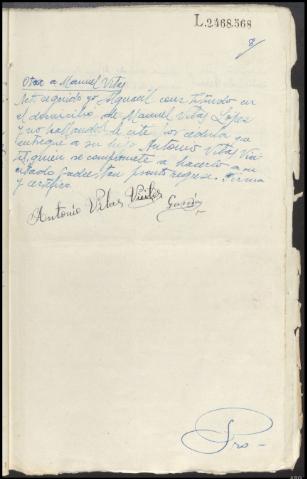 L.2468.568
Otra a Manuel Vilas
Acto seguido yo Alguacil constituido en
el domicilio de Manuel Vilas López
y no hallandole cité por cedula que
entregué a su hijo Antonio Vilas
quien se compromete a hacerlo a su
citado padre tan pronto regrese. Firma
y certifico
Antonio Vilas